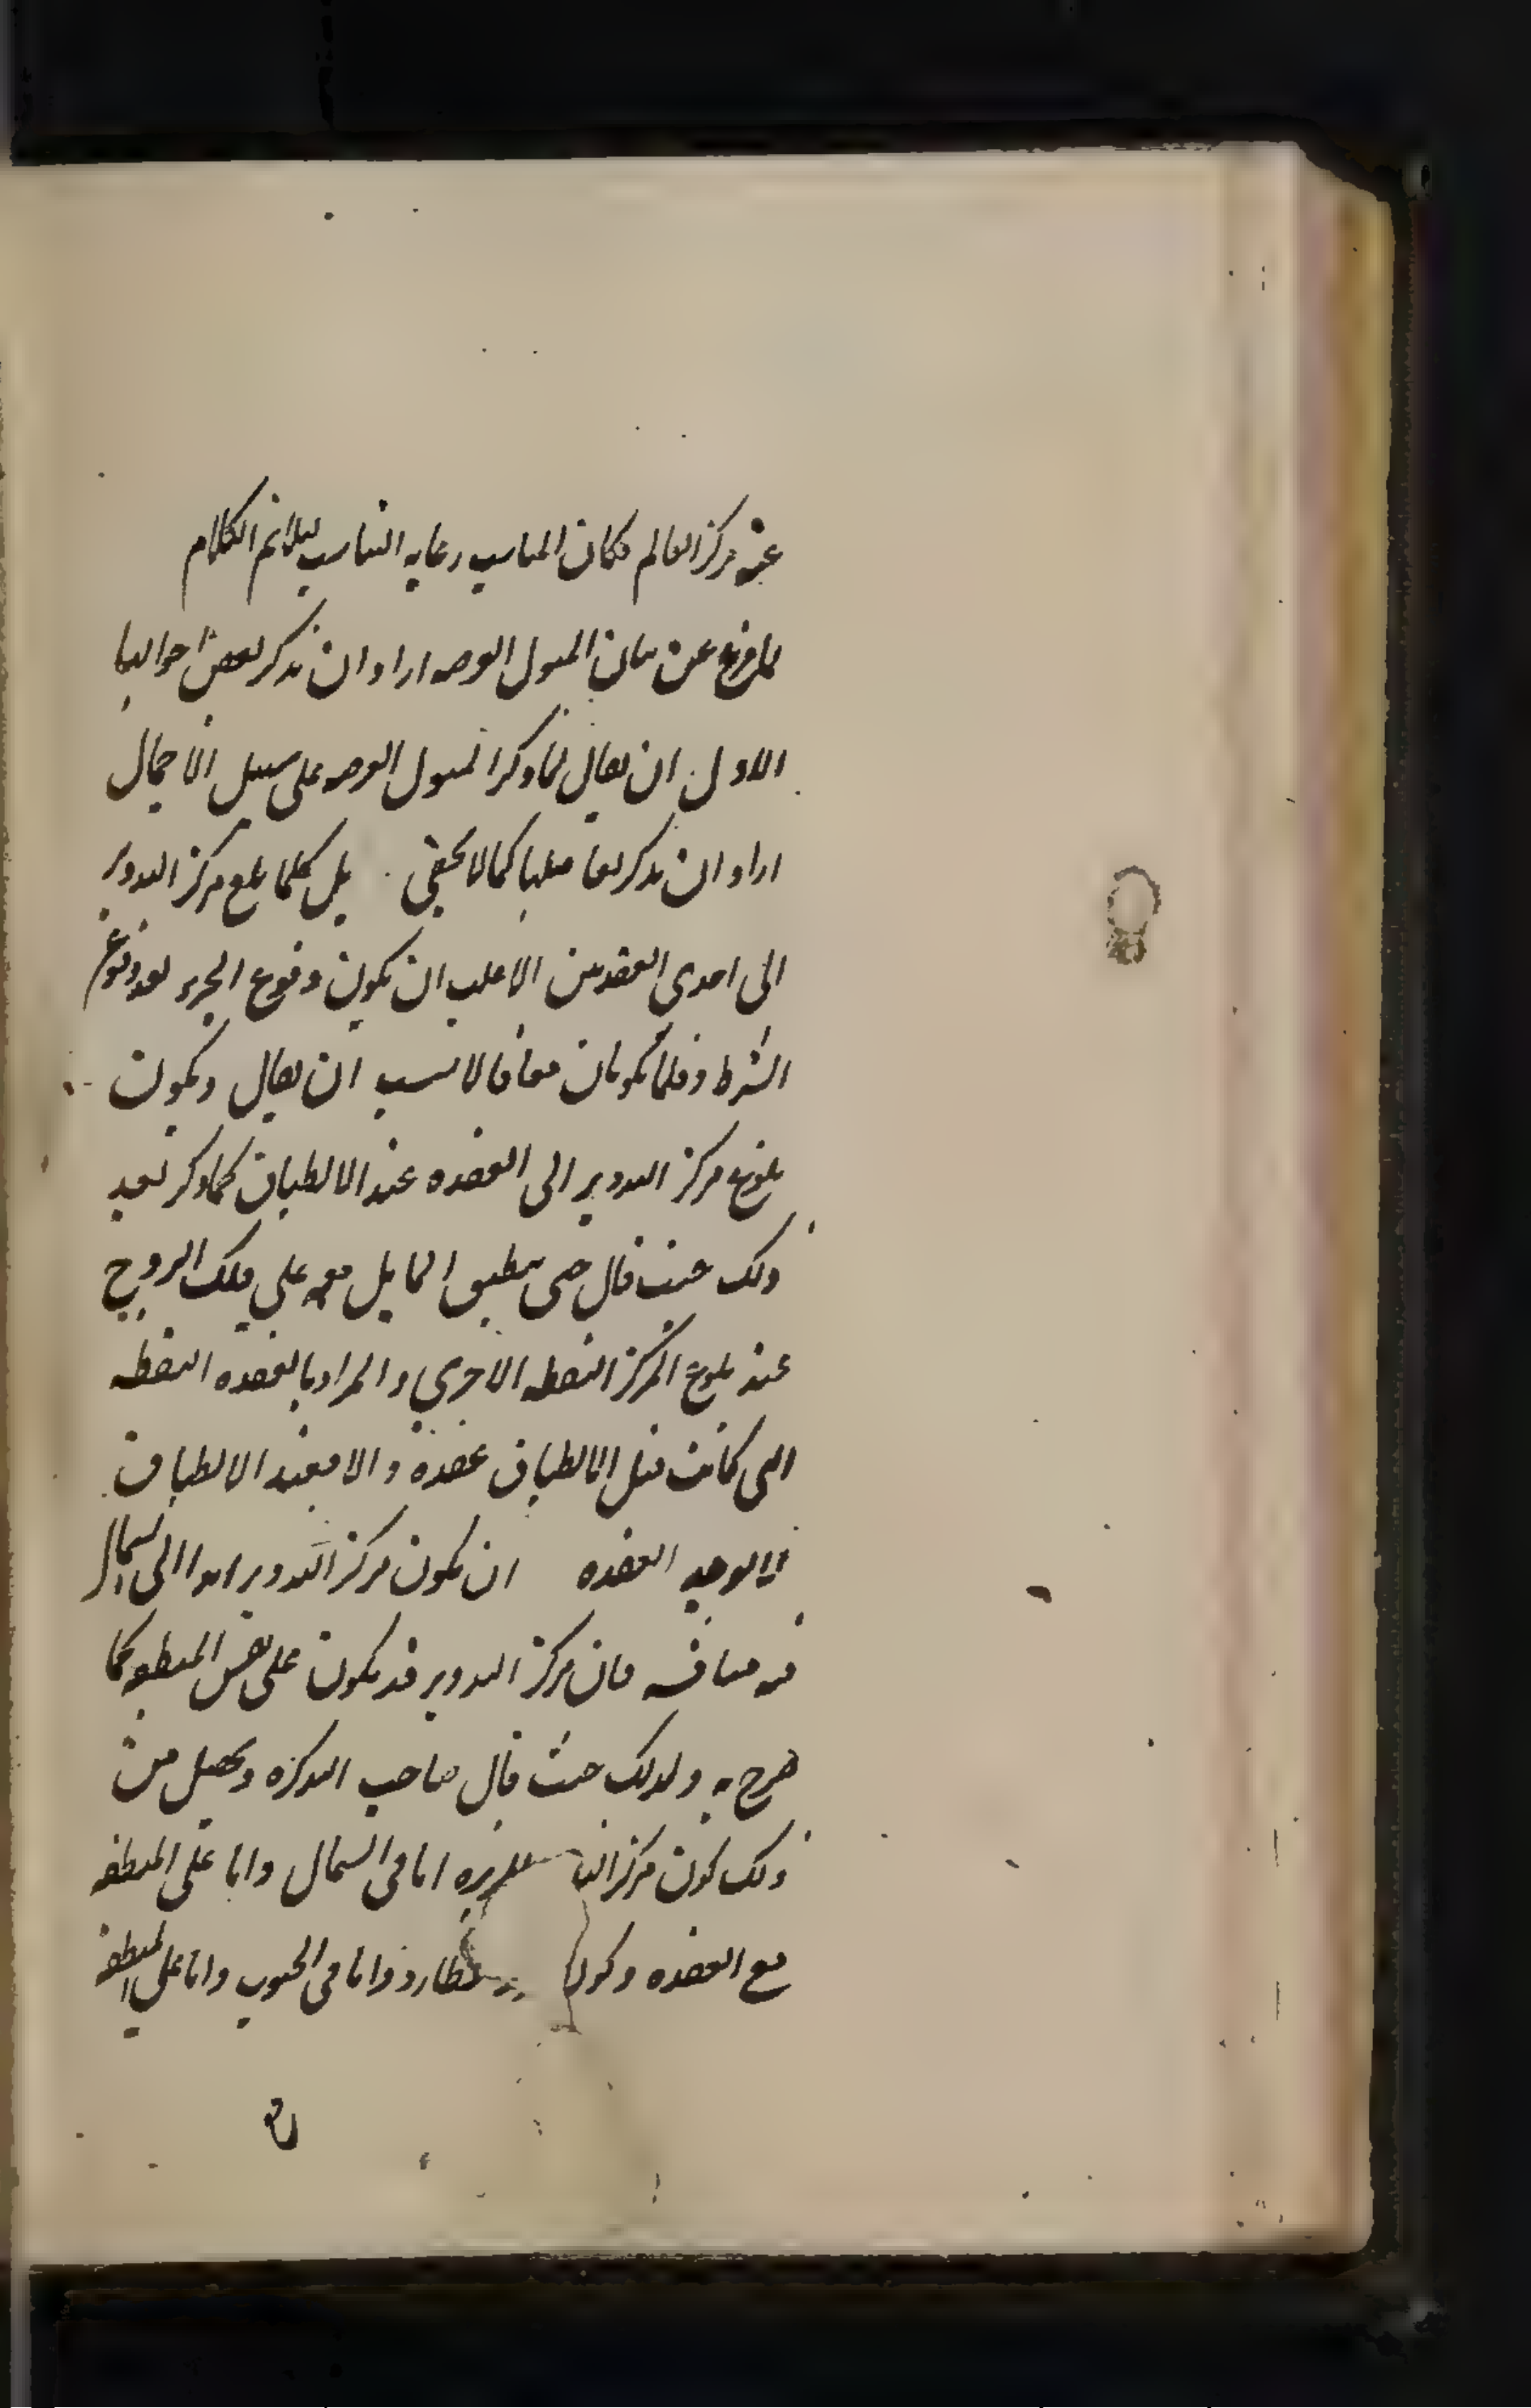 عن مركز العالم فكان المناسب رعاية التناسب ليلائم الكلام
لما فرغ عن بيان الميول العرضية اراد ان يذكر بعض احوالها
الاول ان يقال لما ذكر الميول العرضية على سبيل الاجمال
اراد ان يذكر تفاصيلها كما لا يخفى بل كلما بلغ مركز التدوير
الى احدى العقدتين الاغلب ان يكون وقوع الجزاء بعد وقوع
الشرط وقلما يكونان معا فالانسب ان يقال ويكون
بلوغ مركز التدوير الى العقدة عند الانطباق كما ذكر بعيد
ذلك حيث قال حتى ينطبق المايل معه على فلك البروج
عند بلوغ المركز النقطة الاخرى والمراد بالعقدة النقطة
التي كانت قبل الانطباق عقدة والا فعند الانطباق
لا يوجد العقدة ان يكون مركز التدوير ابدا الى الشمال
فيه مسامحة فان مركز التدوير قد يكون على نفس المنطقة كما
صرح به ولذلك حيث قال صاحب التذكرة ويحصل من
ذلك كون مركز للزهرة اما في الشمال واما على المنطقة
مع العقدة وكون عطارد واما في الجنوب واما على المنطقة